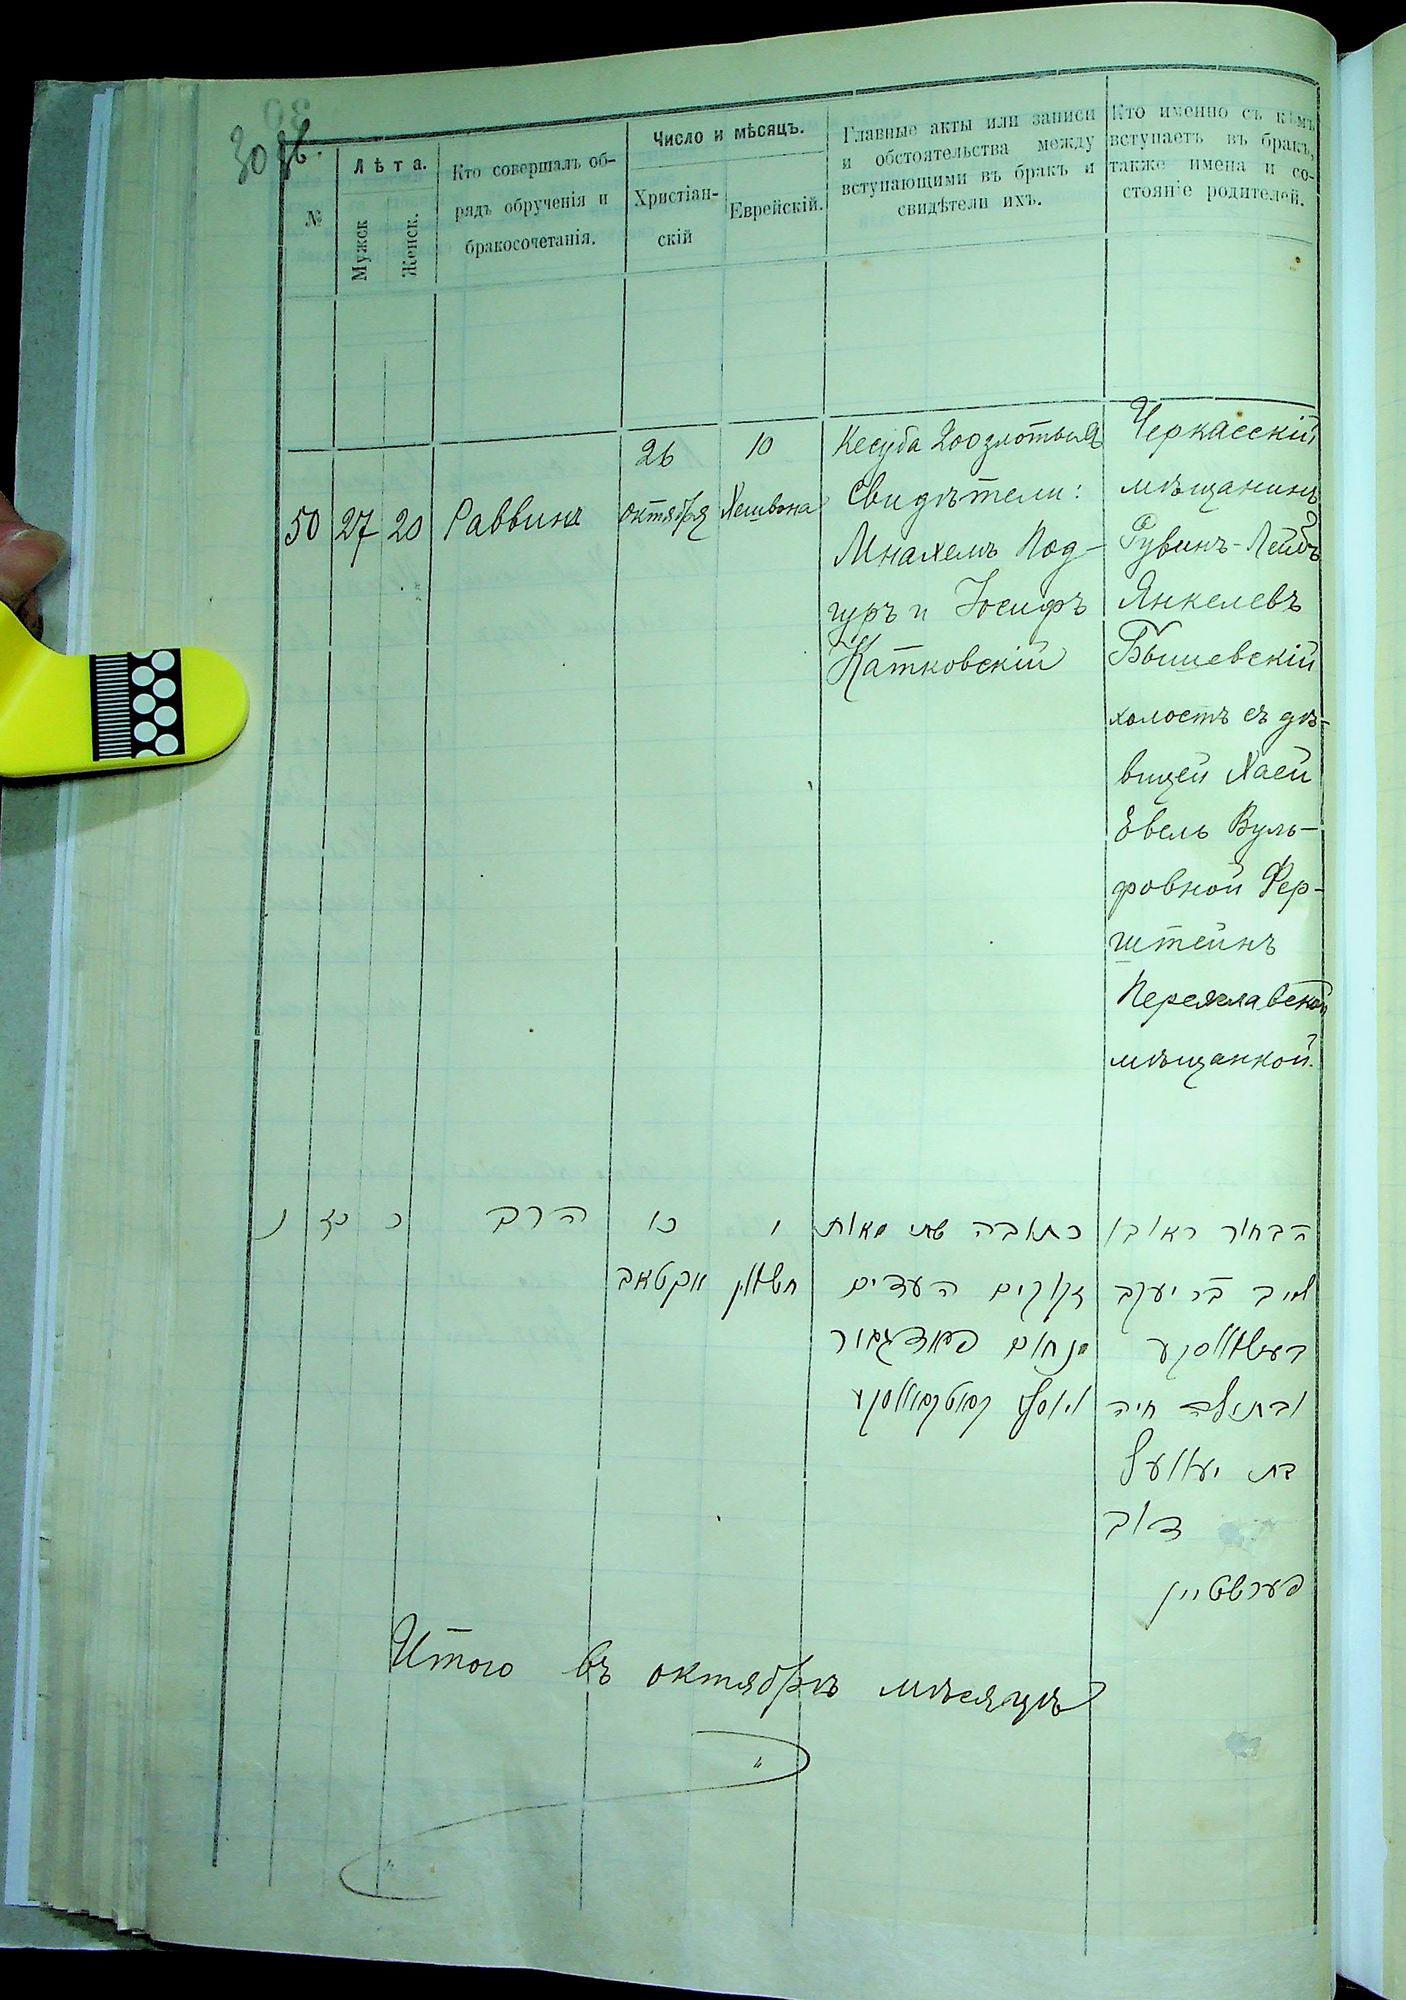 30 об.
№
Лѣта.
Мужск
Женск.
Кто совершалъ об-
рядъ обрученія и
бракосочетанія.
Число и мѣсяцъ.
Христіан-
скій
Еврейскій.
Главные акты или записи
и обстоятельства между
вступающими въ бракъ и
свидѣтели ихъ.
Кто именно съ кѣмъ
вступаетъ въ бракъ,
также имена и со-
стояніе родителей.
50
27
20
Раввинъ
26
октября
10
Хешвона
Кесуба 200 злотыхъ
Свидѣтели:
Мнахемъ Под-
гуръ и Іосифъ
Катковскій
Черкасскій
мѣщанинъ
Рувинъ-Лейбъ
Янкелевъ
Бышевскій
холостъ съ дѣ-
вицей Хаей
Евель Вуль-
фовной Фер-
штейнъ
Переяславской
мѣщанкой.
נ
כז
כ
הרב
כו
אקטאב
י
חשוון
כתובה שתי מאות
זקוקים העדים
מנחום פאדגאור
הבחור ראובן
ליב בר יעקב
ובתולה חיה
בת
פערשטיין
Итого въ октябрѣ мѣсяцѣ